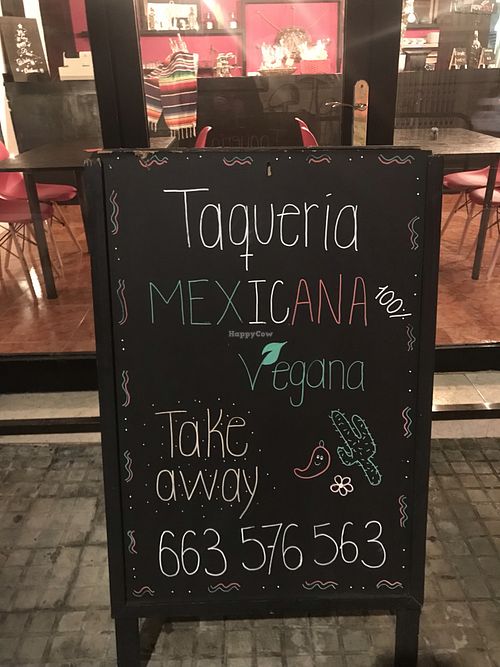 Taquería
MEXICANA 100%
HappyCow
Vegana
Take
away
663 576 563